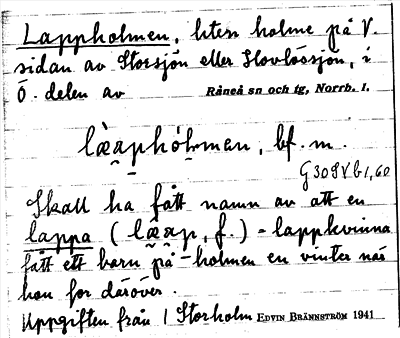 Lappholmen, liten holme på V.
sidan av Storsjön eller Hovlössjön, i
Ö. delen av Råneå sn och tg, Norrb. l.
lȧapho̍lmen, bf. m.
Skall ha fått namn av att en
lappa (lȧap, f.) = lappkvinna
fått ett barn på -holmen en vinter när
hon for däröver.
Uppgiften från 1 Storholm EDVIN BRÄNNSTRÖM 1941